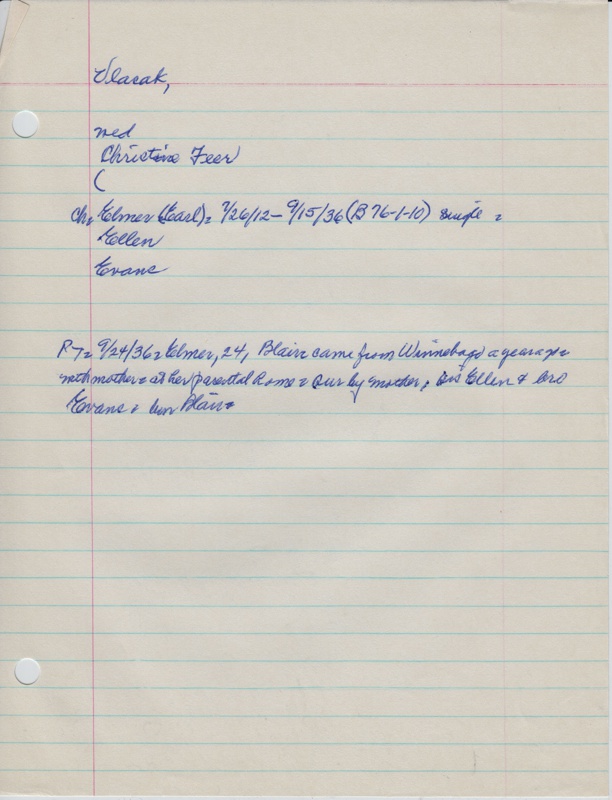 Vlasak,
med
Christine Feer
(
ch= Elmer (Earl)= 7/26/12 - 9/15/36 (B 76-1-10) single =
Ellen
Evans
PT= 9/24/36= Elmer, 24, Blair= came from Winnebago a year ago=
with mother= at her parental home= sur by mother, sis Ellen & bro
Evans= bur Blair=